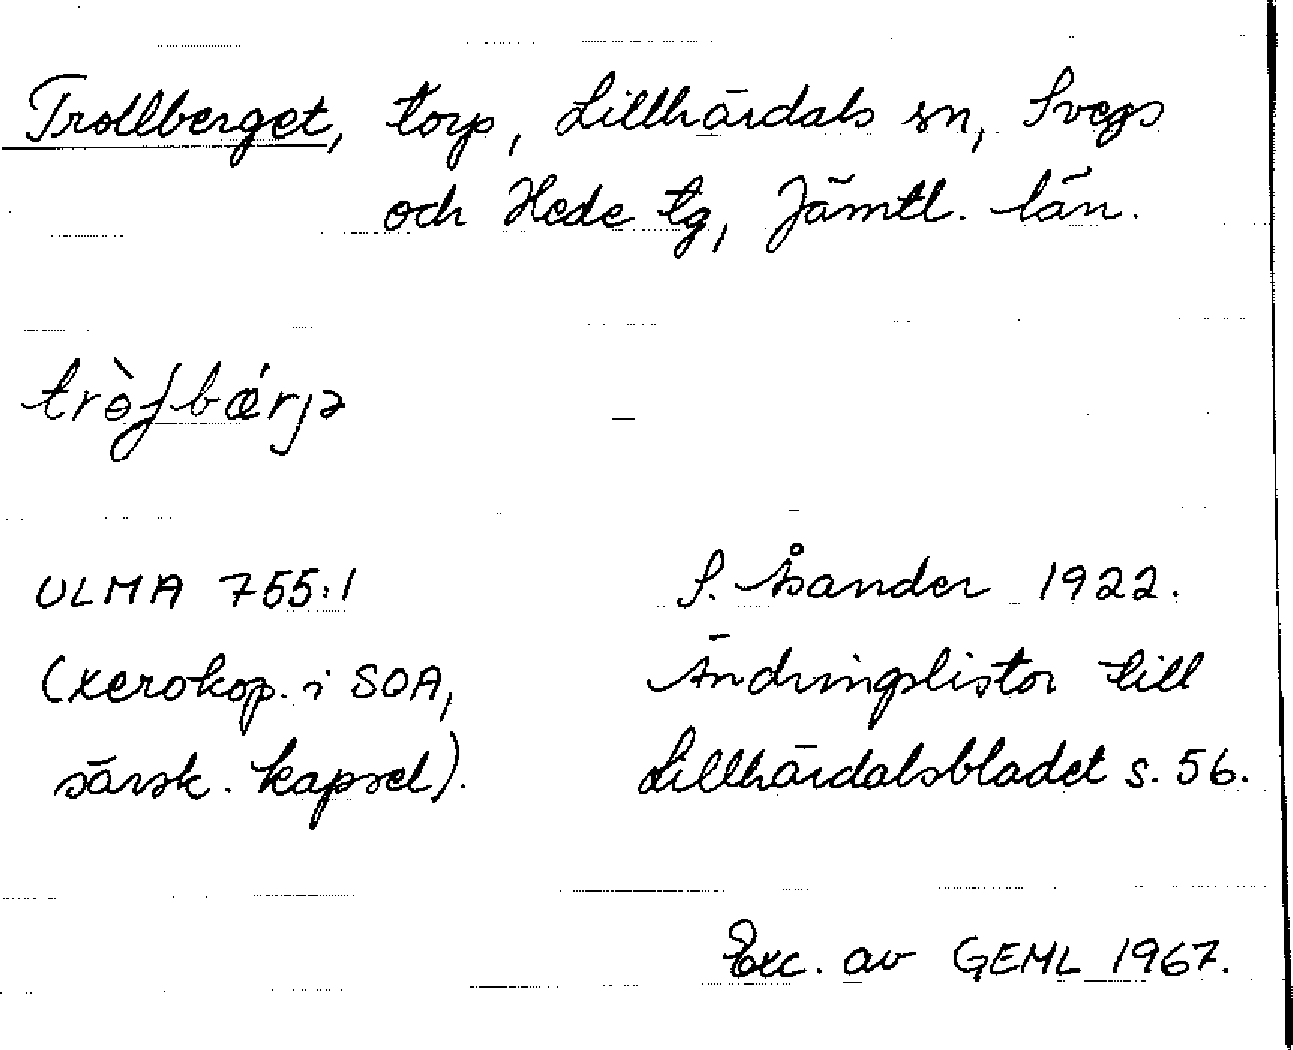 Trollberget, torp, Lillhärdals sn, Svegs
och Hede tg, Jämtl. län.
ULMA 755:1
S. Åsander 1922.
(xerokop. i SOA,
Ändringslistor till
särsk. kapsel).
Lillhärdalsbladet s. 56.
Exc. av GEML 1967.